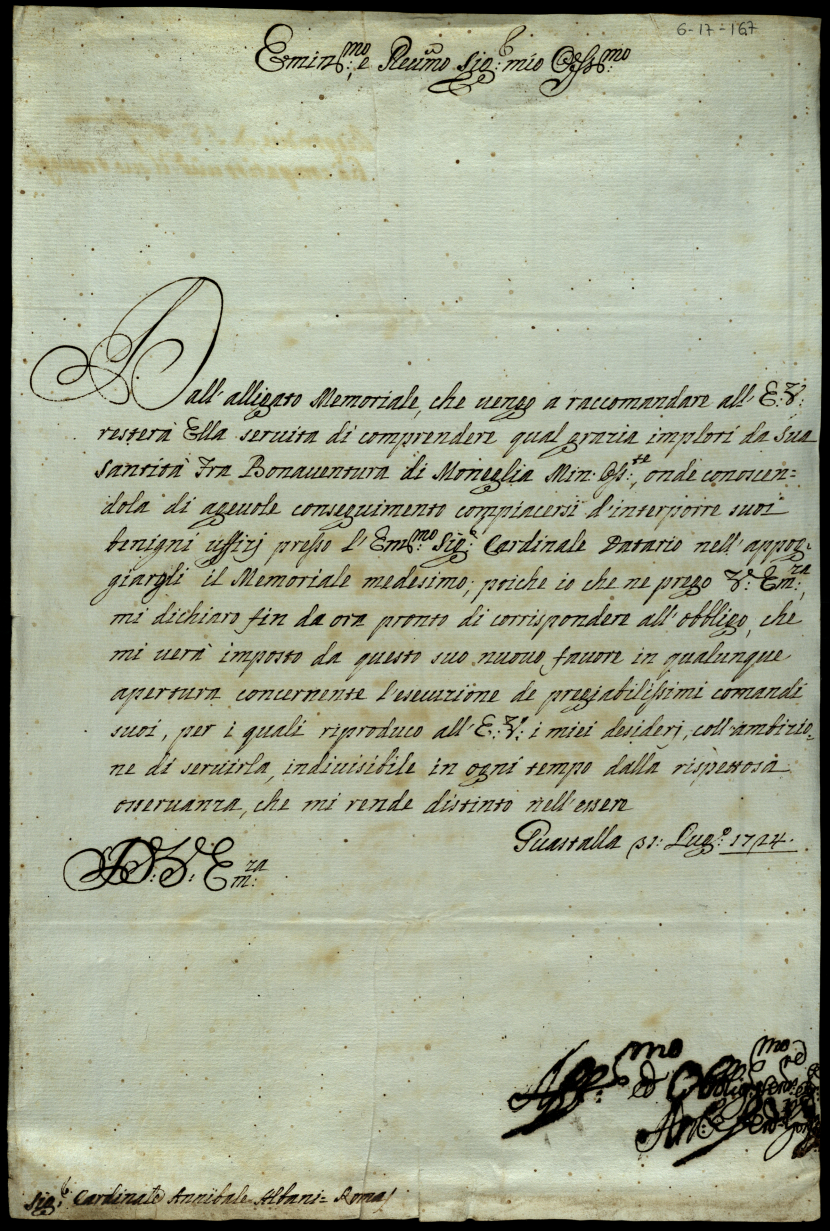 6-17-167
Emin:mo, e Reu:mo Sig:r mio Oss:mo
Dall'alligato Memoriale, che uengo a raccomandare all'E: V:
resterà Ella seruita di comprendere qual grazia implori da Sua
Santità Fra Bonauentura di Moneglia Min: Oss:te, onde conoscen=
dola di ageuole conseguimento compiacersi d'interporre suoi
benigni uffizj presso l'Em:mo Sig:r Cardinale Datario nell'appog=
giargli il Memoriale medesimo; poiche io che ne prego V: Em:za,
mi dichiaro fin da ora pronto di corrispondere all'obbligo, che
mi uerà imposto da questo suo nuouo fauore in qualunque
apertura concernente l'esecuzione de pregiabilissimi comandi
suoi, per i quali riproduco all'E: V: i miei desiderj, coll'ambizio=
ne di seruirla, indiuisibile in ogni tempo dalla rispettosa
osseruanza, che mi rende distinto nell'essere
Guastalla 31: Lug:o 1724.
D: V: Em:za
Aff:mo ed Obblig:mo
Ant:o Ferd:o Gon
Sig:r Cardinale Annibale Albani = Roma